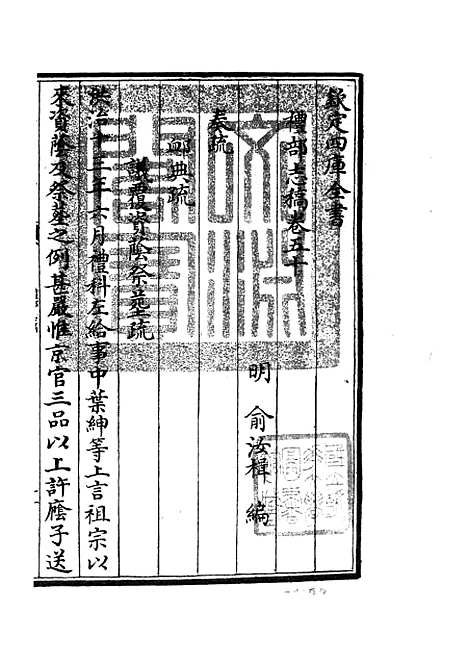 欽定四庫全書
禮部志稿卷五十
明 俞汝楫 編
奏疏
卹典疏
議覆資蔭祭塟疏
弘治十三年六月禮科左給事中葉紳等上言祖宗以
來資蔭及祭塟之例甚嚴惟京官三品以上許廕子送